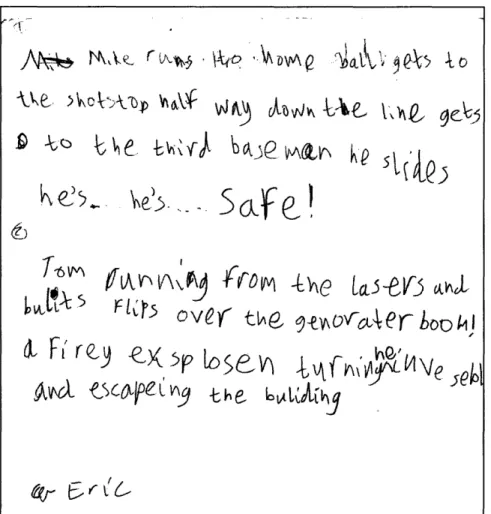 ①
Mike runs to home ball gets to
the shotstop half way down the line gets
to the third baseman he slides
he's.. he's.... Safe!
②
Tom running from the lasers and
bulits Flips over the genorater boom!
a Firey exsplosen turning he
and escapeing the buliding
Eric